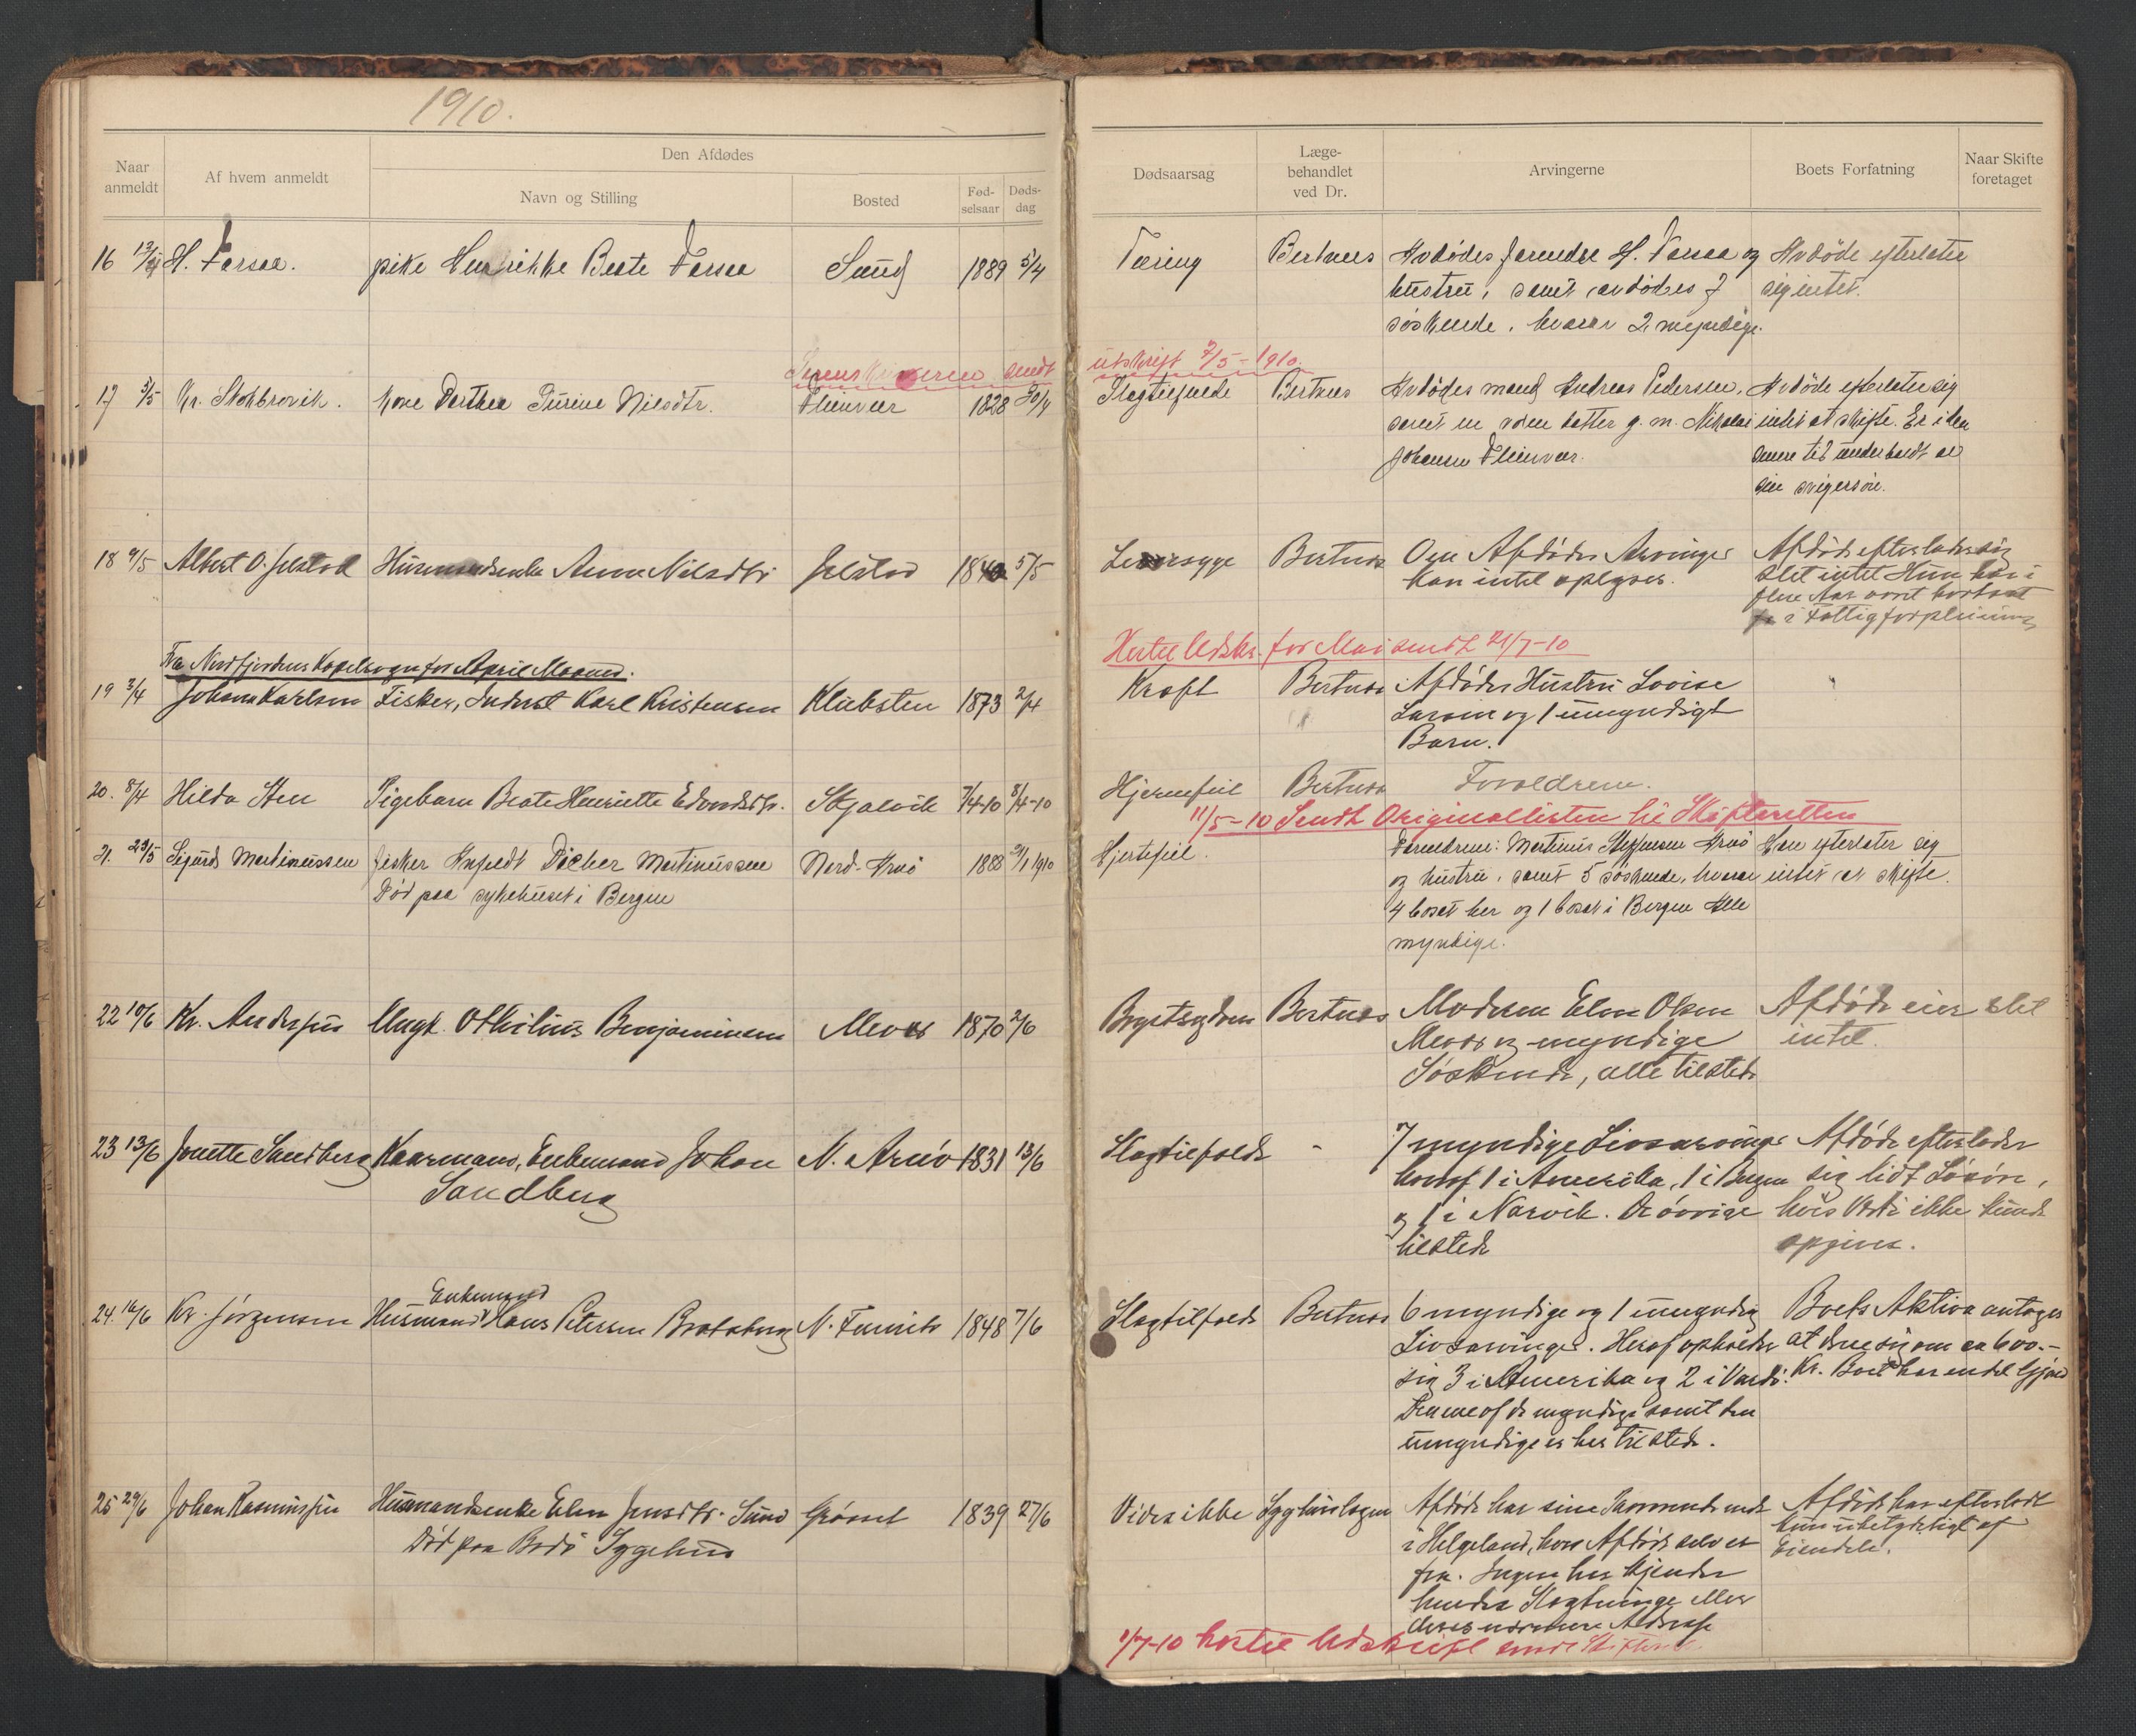 1910.
Naar anmeldt
Af hvem anmeldt
Den Afdødes
Navn og Stilling
Bosted
Fød-selsaar
Døds-dag
Dødsaarsag
Læge-behandlet ved Dr.
Arvingerne
Boets Forfatning
Naar Skifte foretaget
16 H. Farsaa. pike Henrikke Beate Farsaa Sund 1889 5/4 Tæring Bertnes Avdødes forældre H. Farsaa og Avdøde efterlater
hustru, samt avdødes 7 sig intet.
søskende, hvorav 2 myndige.
sendt utskrift 7/5-1910.
17 5/5 Kr. Stokbrovik. kone Dorthea Nilsdtr. Flienvær 1828 30/4 Slagtilfælde Bertnes Avdødes mand Andreas Pedersen, Avdøde efterlater sig
samt en voksen datter g. m. Nikolai intet at skifte. Er i den
Johansen Flienvær. senere tid underholdt av
sin svigersøn.
18 9/5 Albert O. Jelstad Husmandsenke Anna Nilsdtr Jelstad 5/5 Leversyge Bertnes Om Afdødes Arvinger Afdøde efterlader sig
kan intet oplyses. slet intet Hun har i
flere Aar været
Fattigforpleining
Hertil Udskr. for Mai sendt 21/7-10
Fra Nordfjordens Kapelsogn for April Maaned.
19 3/4 Johan Karlsen Fisker, Inderst Karl Kristensen Klubsten 1873 2/4 Kræft Bertnes Afdødes Hustru Lovise
Larsine og 1 umyndigt
Barn.
20. 8/4 Hilda Sten Pigebarn Beate Henriette Edvardsdtr. Skjalvik 7/4-10 8/4-10 Hjernefeil Bertnes Forældrene.
11/5-10 Sendt Originallisten til Skifteretten
21. 23/5 Sigurd Martinussen fisker Anfeldt Martinussen Nord-Arnø 1888 1910 Hjertefeil. Forældrene: Martinus Steffensen Arnø Han efterlater sig
Død paa sykehuset i Bergen og hustru, samt 5 søskende, hvorav intet at skifte.
4 bosat her og 1 bosat i Bergen Alle
myndige.
22 10/6 Kr. Andersen Ungk. Othilius Benjaminsen Mevær 1870 2/6 Brystsygdom Bertnes Moderen Elen Olsen Afdøde eier slet
Mevær og myndige intet.
Søskende, alle tilstede
23 13/6 Jonette Sandberg Kaarmand, Enkemand Johan N. Arnø 1831 13/6 Slagtilfælde - 7 myndige Livsarvinger Afdøde efterlader
Sandberg hvoraf 1 i Amerika, 1 i Bergen sig lidt Løsøre,
og 1 i Narvik. De øvrige hvis Værdi ikke kunde
tilstede opgives.
Enkemand
24. 16/6 Kr. Jørgensen Husmand Hans Petersen Bratsberg N. 1848 7/6 Slagtilfælde Bertnes 6 myndige og 1 umyndig Boets Aktiva antages
Livsarvinger. Heraf opholder at dreie sig om ca 600.-
sig 3 i Amerika og 2 i Vardø. Kr. Boet har endel Gjæld
Den ene af de myndige samt den
umyndige er her tilstede.
25 29/6 Johan Rasmussen Husmandsenke Elen Jensdtr. Sund Grønset 1839 27/6 Vides ikke Sygehuslægen Afdøde har sine Afdøde har efterladt
Død paa Bodø Sygehus i Helgeland, hvor Afdøde selv er kun ubetydeligt af
fra. Ingen her kjender Eiendele.
hendes Slægtninge eller
deres nærmere Adresse
1/7-10 hertil Udskrift sendt